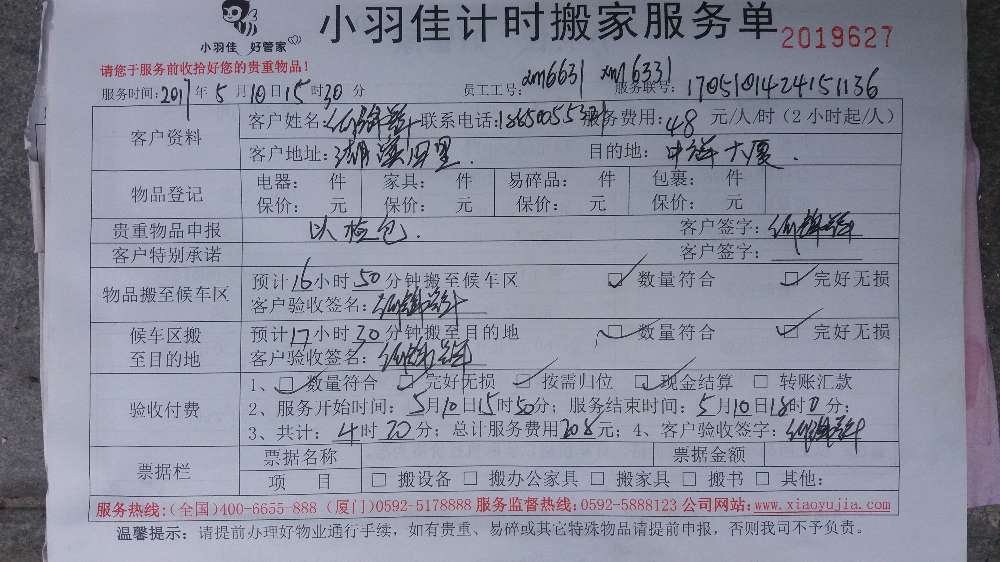 小羽佳 好管家
小羽佳计时搬家服务单 2019627
请您于服务前收拾好您的贵重物品!
服务时间:2017年5月10日15时30分 员工工号: xm6631 xm6331 服务联号: 1705101424151136
客户资料 客户姓名: 联系电话: 服务费用:48元/人/时(2小时起/人)
客户地址: 湖滨四里 目的地: 中祥大厦.
物品登记 电器: 件 家具: 件 易碎品: 件 包裹: 件
保价: 元 保价: 元 保价: 元 保价: 元
贵重物品申报 以检包. 客户签字:
客户特别承诺 客户签字:
物品搬至候车区 预计16小时50分钟搬至候车区 □数量符合 □完好无损
客户验收签名:
候车区搬至目的地 预计17小时30分钟搬至目的地 □数量符合 □完好无损
客户验收签名:
验收付费 1、□数量符合 □完好无损 □按需归位 □现金结算 □转账汇款
2、服务开始时间:5月10日15时50分;服务结束时间:5月10日18时0分;
3、共计:4时20分;总计服务费用208元;4、客户验收签字:
票据栏 票据名称 票据金额
项 目 □搬设备 □搬办公家具 □搬家具 □搬书 □其他:
服务热线:(全国)400-6655-888(厦门)0592-5178888 服务监督热线:0592-5888123 公司网站:www.xiaoyujia.com
温馨提示: 请提前办理好物业通行手续,如有贵重、易碎或其它特殊物品请提前申报,否则我司不予负责。